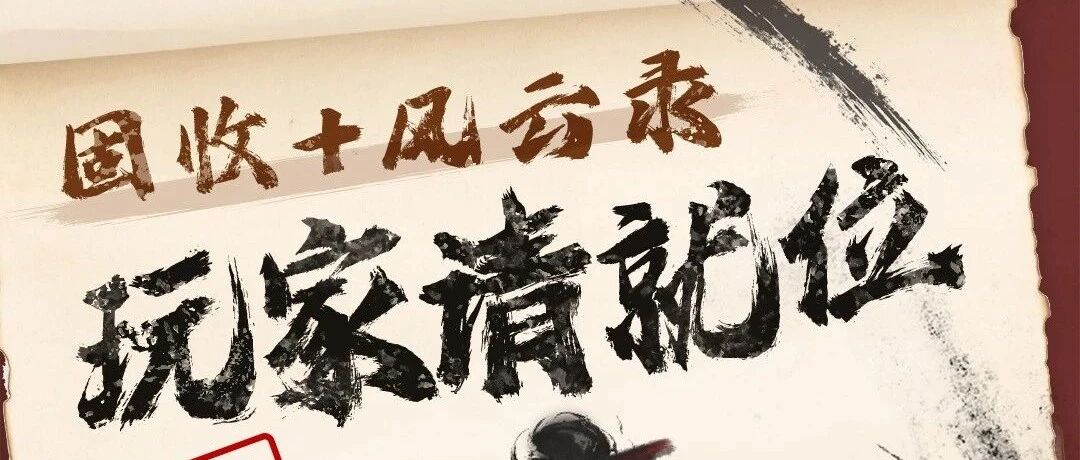 固收+风云录
玩家请就位